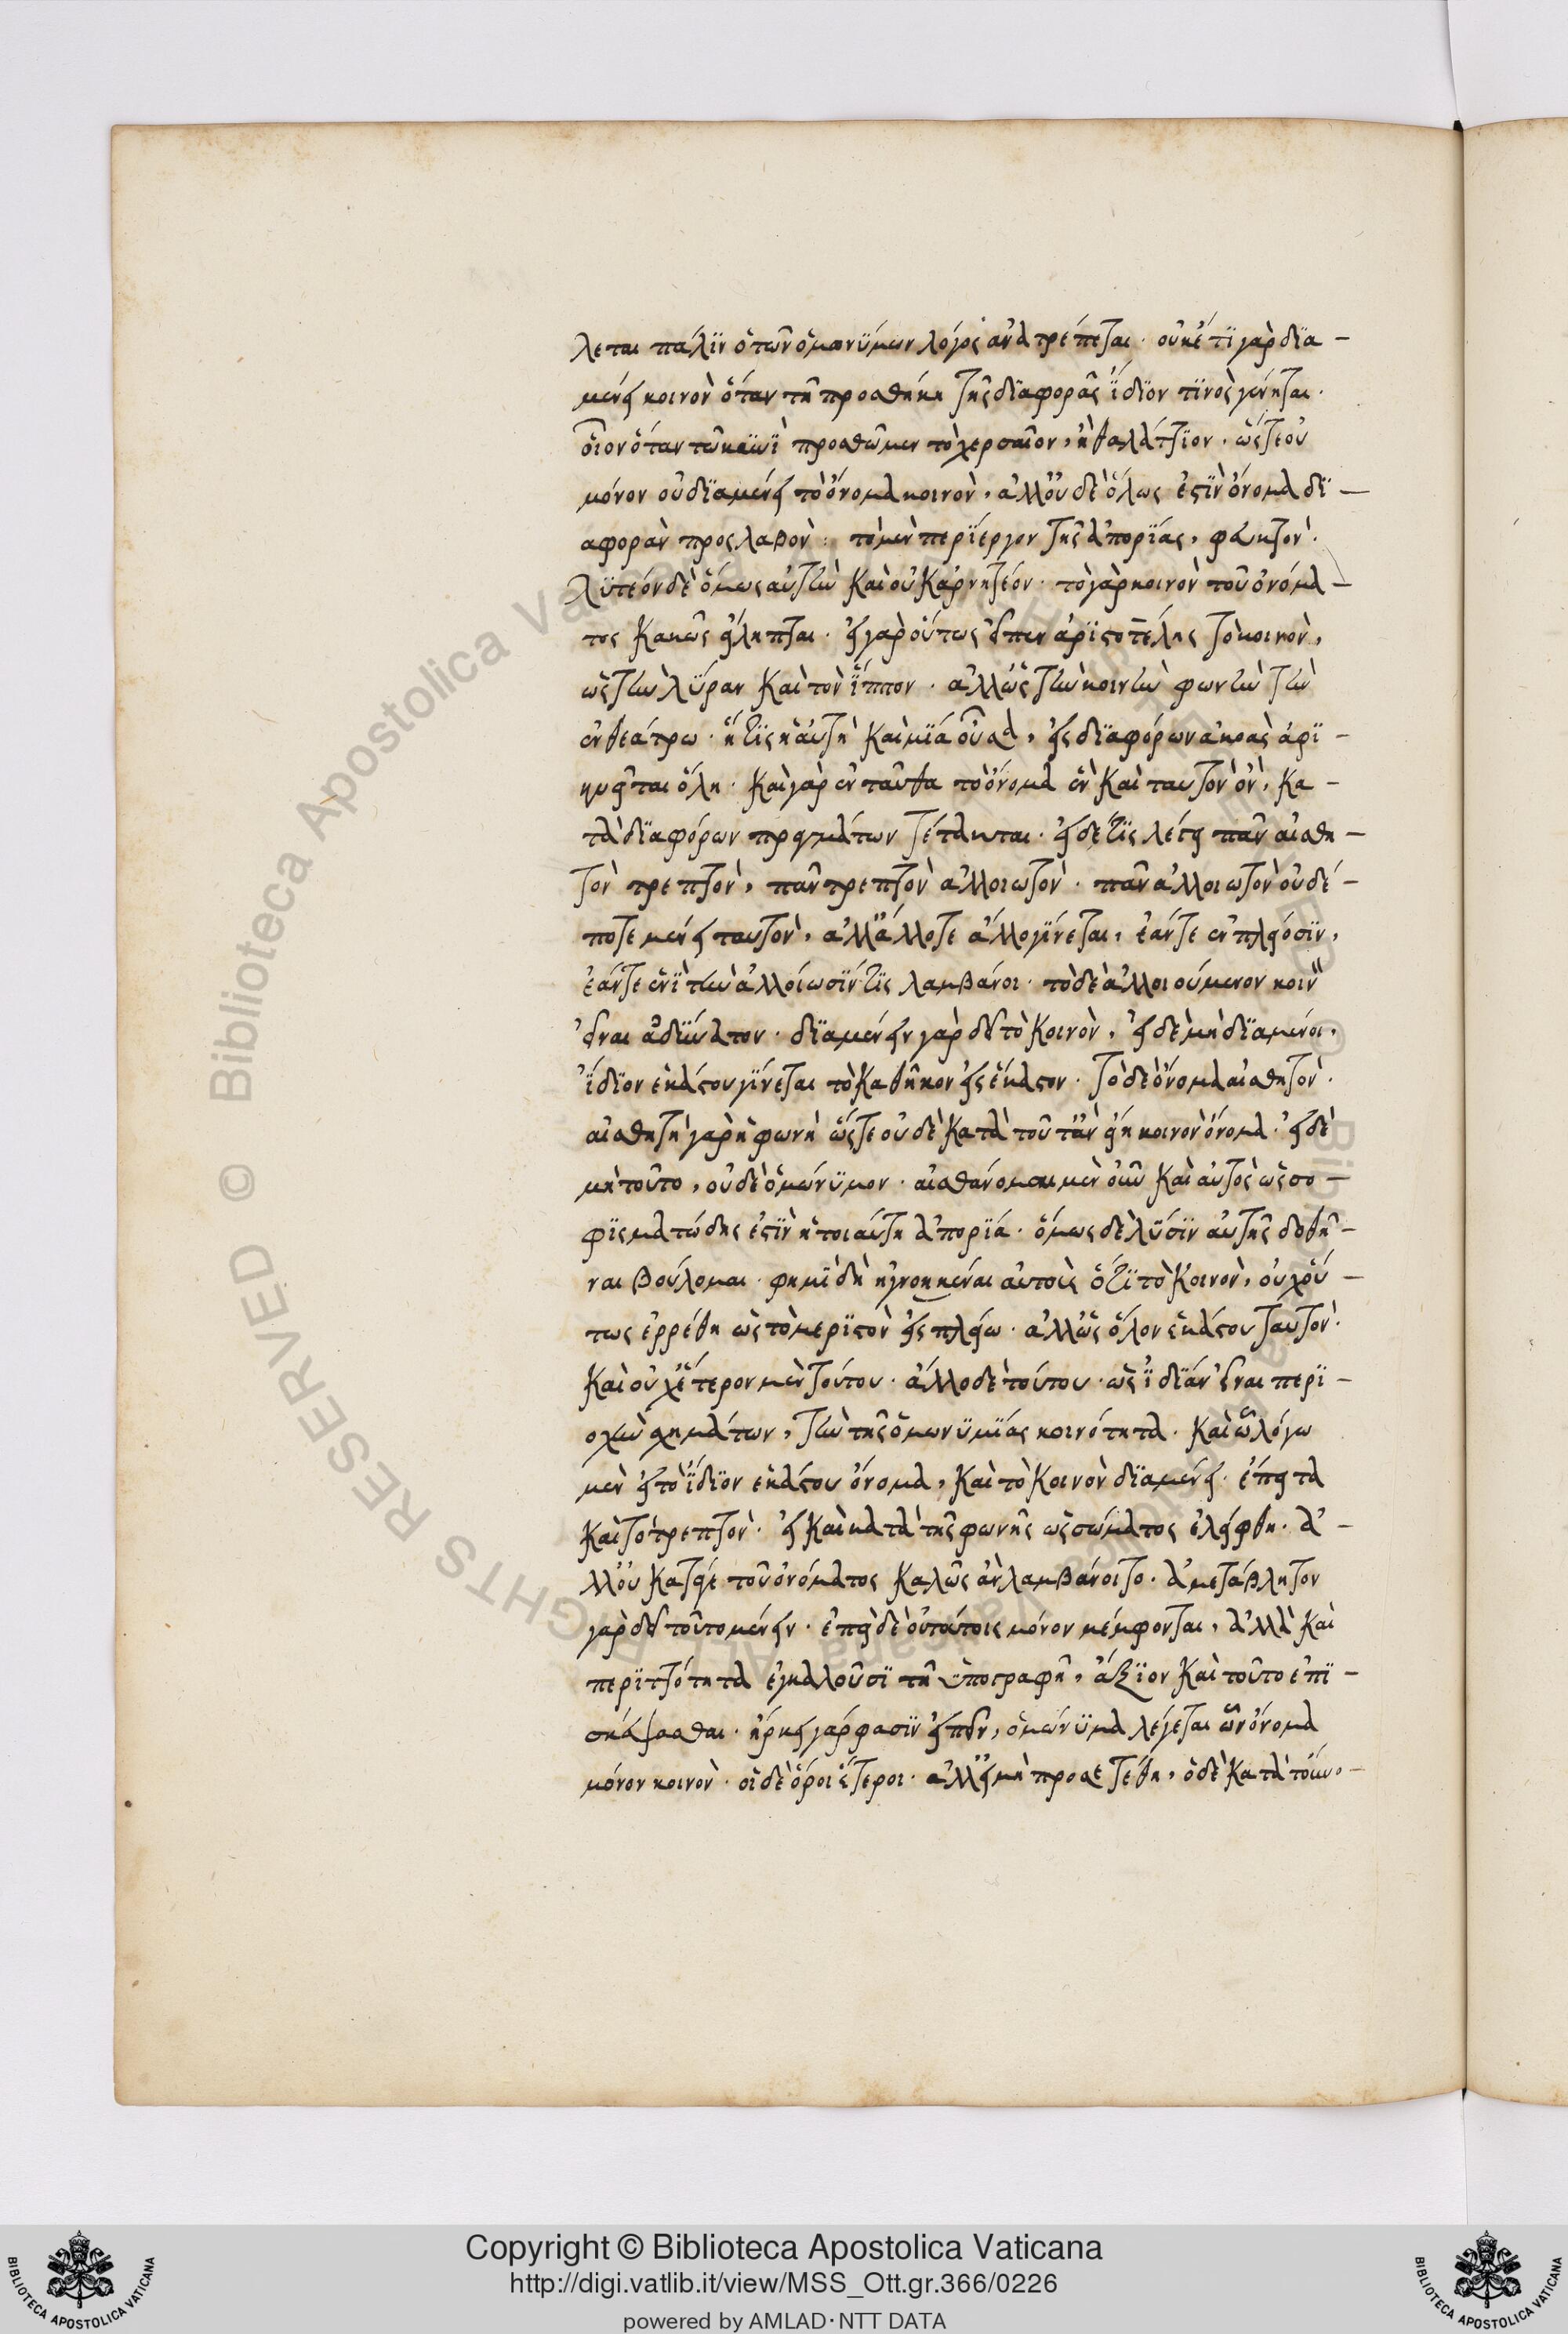 λεται πάλϊν ὁ τῶν ὁμωνΰμων λόγος ἀνατρέπεται. οὐκέτϊ γὰρ δϊα-
μένει κοινὸν ὅταν τῇ προσθήκῃ τῆς δϊαφορᾶς ἴ̈δϊον τϊνὸς γένηται.
οἷον ὅταν τῷ κυνῒ προσθῶμεν τὸ χερσαῖον, ἢ θαλάττϊον. ὥστε οὐ
μόνον οὐ δϊαμένει τὸ ὄνομα κοινὸν, ἀλλ' οὐδὲ ὅλως ἐστῒν ὄνομα δϊ-
αφορὰν προσλαβὸν. τὸ μὲν περΐεργον τῆς ἀπορΐας, φευκτὸν.
λϋτέον δὲ ὅμως αὐτὴν καὶ οὐκ ἀρνητέον. τὸ γὰρ κοινὸν τοῦ ὀνόμα-
τος κακῶς εἴληπται. εἰ γὰρ οὕτως εἶπεν ἀρϊστοτέλης τὸ κοινὸν,
ὡς τὴν λΰραν καὶ τὸν ἵ̈ππον. ἀλλ' ὡς τὴν κοινὴν φωνὴν τὴν
ἐν θεάτρῳ. ἥτϊς ἡ αὐτὴ καὶ μΐα οὖσα, εἰς δϊαφόρων ἀκοὰς ἀφϊ-
κνεῖται ὅλη. καὶ γὰρ ἐνταῦθα τὸ ὄνομα ἓν καὶ ταυτὸν ὂν, κα-
τὰ δϊαφόρων πραγμάτων τέτακται. εἰ δέ τϊς λέγει πᾶν αἰσθη-
τὸν τρεπτὸν, πᾶν τρεπτὸν ἀλλοιωτὸν. πᾶν ἀλλοιωτὸν οὐδέ-
ποτε μένει ταυτὸν, ἀλλ' ἄλλοτε ἄλλο γΐνεται, ἐάν τε ἐν πλείοσϊν,
ἐάν τε ἑνῒ τὴν ἀλλοίωσΐν τϊς λαμβάνοι. τὸ δὲ ἀλλοιούμενον κοιν(ὸν)
εἶναι ἀδΰνατον. δϊαμένειν γὰρ δεῖ τὸ κοινὸν, εἰ δὲ μὴ δϊαμένοι,
ἴ̈δϊον ἑκάστου γΐνεται τὸ καθῆκον εἰς ἕκαστον. τὸ δὲ ὄνομα αἰσθητὸν.
αἰσθητὴ γὰρ ἡ φωνὴ ὥστε οὐδὲ κατὰ τοῦτ' ἂν εἴη κοινὸν ὄνομα. εἰ δὲ
μὴ τοῦτο, οὐδὲ ὁμώνϋμον. αἰσθάνομαι μὲν οὖν καὶ αὐτὸς ὡς σο-
φϊσματώδης ἐστῒν ἡ τοιαύτη ἀπορΐα. ὅμως δὲ λΰσϊν αὐτῆς δοθῆ-
ναι βούλομαι. φημῒ δὴ ἠγνοηκέναι αὐτοὺς ὅτϊ τὸ κοινὸν, οὐχ οὕ-
τως ἐρρέθη ὡς τὸ μερϊστὸν εἰς πλείω. ἀλλ' ὡς ὅλον ἑκάστου ταυτὸν.
καὶ οὐχ ἕτερον μὲν τούτου. ἄλλο δὲ τούτου. ὡς ϊ̓δΐαν εἶναι περϊ-
οχὴν χημάτων, τὴν τῆς ὁμωνϋμΐας κοινότητα. καὶ ᾧ λόγῳ
μὲν εἰ τὸ ἴ̈δϊον ἑκάστου ὄνομα, καὶ τὸ κοινὸν δϊαμένει. ἔπειτα
καὶ τὸ τρεπτὸν. εἰ καὶ κατὰ τῆς φωνῆς ὡς σώματος ἐλείφθη. ἀ-
λλ' οὐ κατά γε τοῦ ὀνόματος καλῶς ἂν λαμβάνοιτο. ἀμετάβλητον
γὰρ δεῖ τοῦτο μένειν. ἐπεὶ δὲ οὐ τούτοις μόνον μέμφονται, ἀλλὰ καὶ
περϊττότητα ἐγκαλοῦσϊ τῇ ϋ̔πογραφῇ, ἄξϊον καὶ τοῦτο ἐπϊ-
σκέψασθαι. ἤρκει γάρ φασϊν εἰπεῖν, ὁμώνϋμα λέγεται ὧν ὄνομα
μόνον κοινὸν. οἱ δὲ ὅροι ἕτεροι. ἀλλ' εἰ μὴ προσετέθη, ὁ δὲ κατὰ τοὔνο-
Copyright © Biblioteca Apostolica Vaticana
http://digi.vatlib.it/view/MSS_Ott.gr.366/0226
powered by AMLAD·NTT DATA